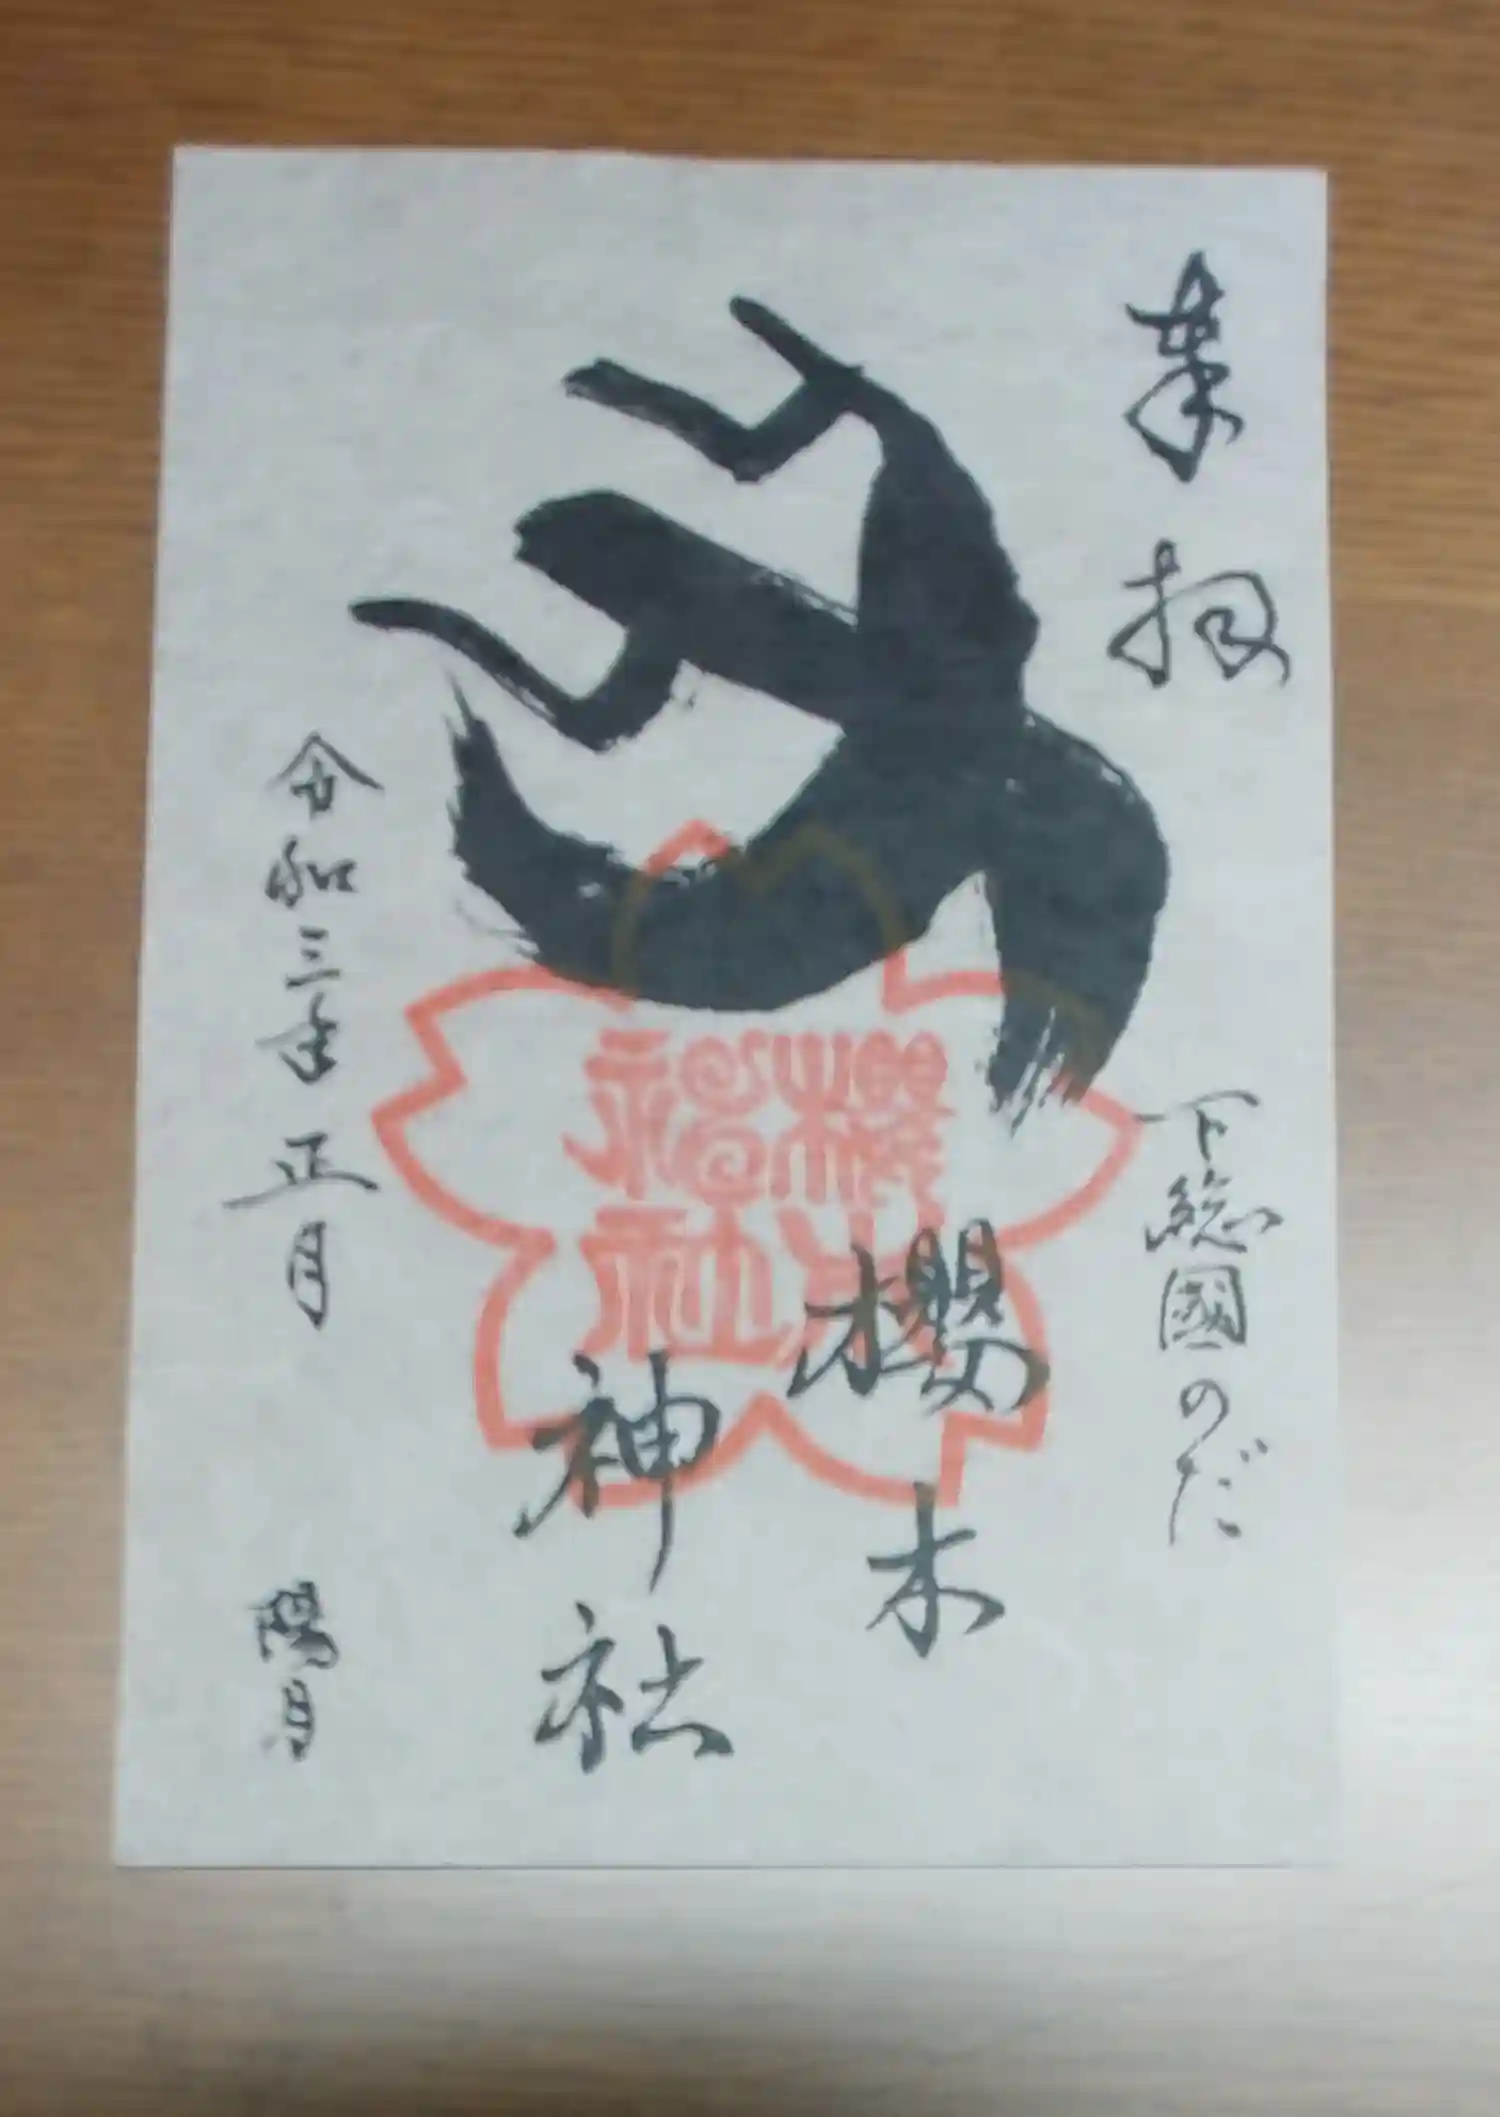 奉拝
下総國のだ
櫻木
神社
櫻木
神社
令和三年正月